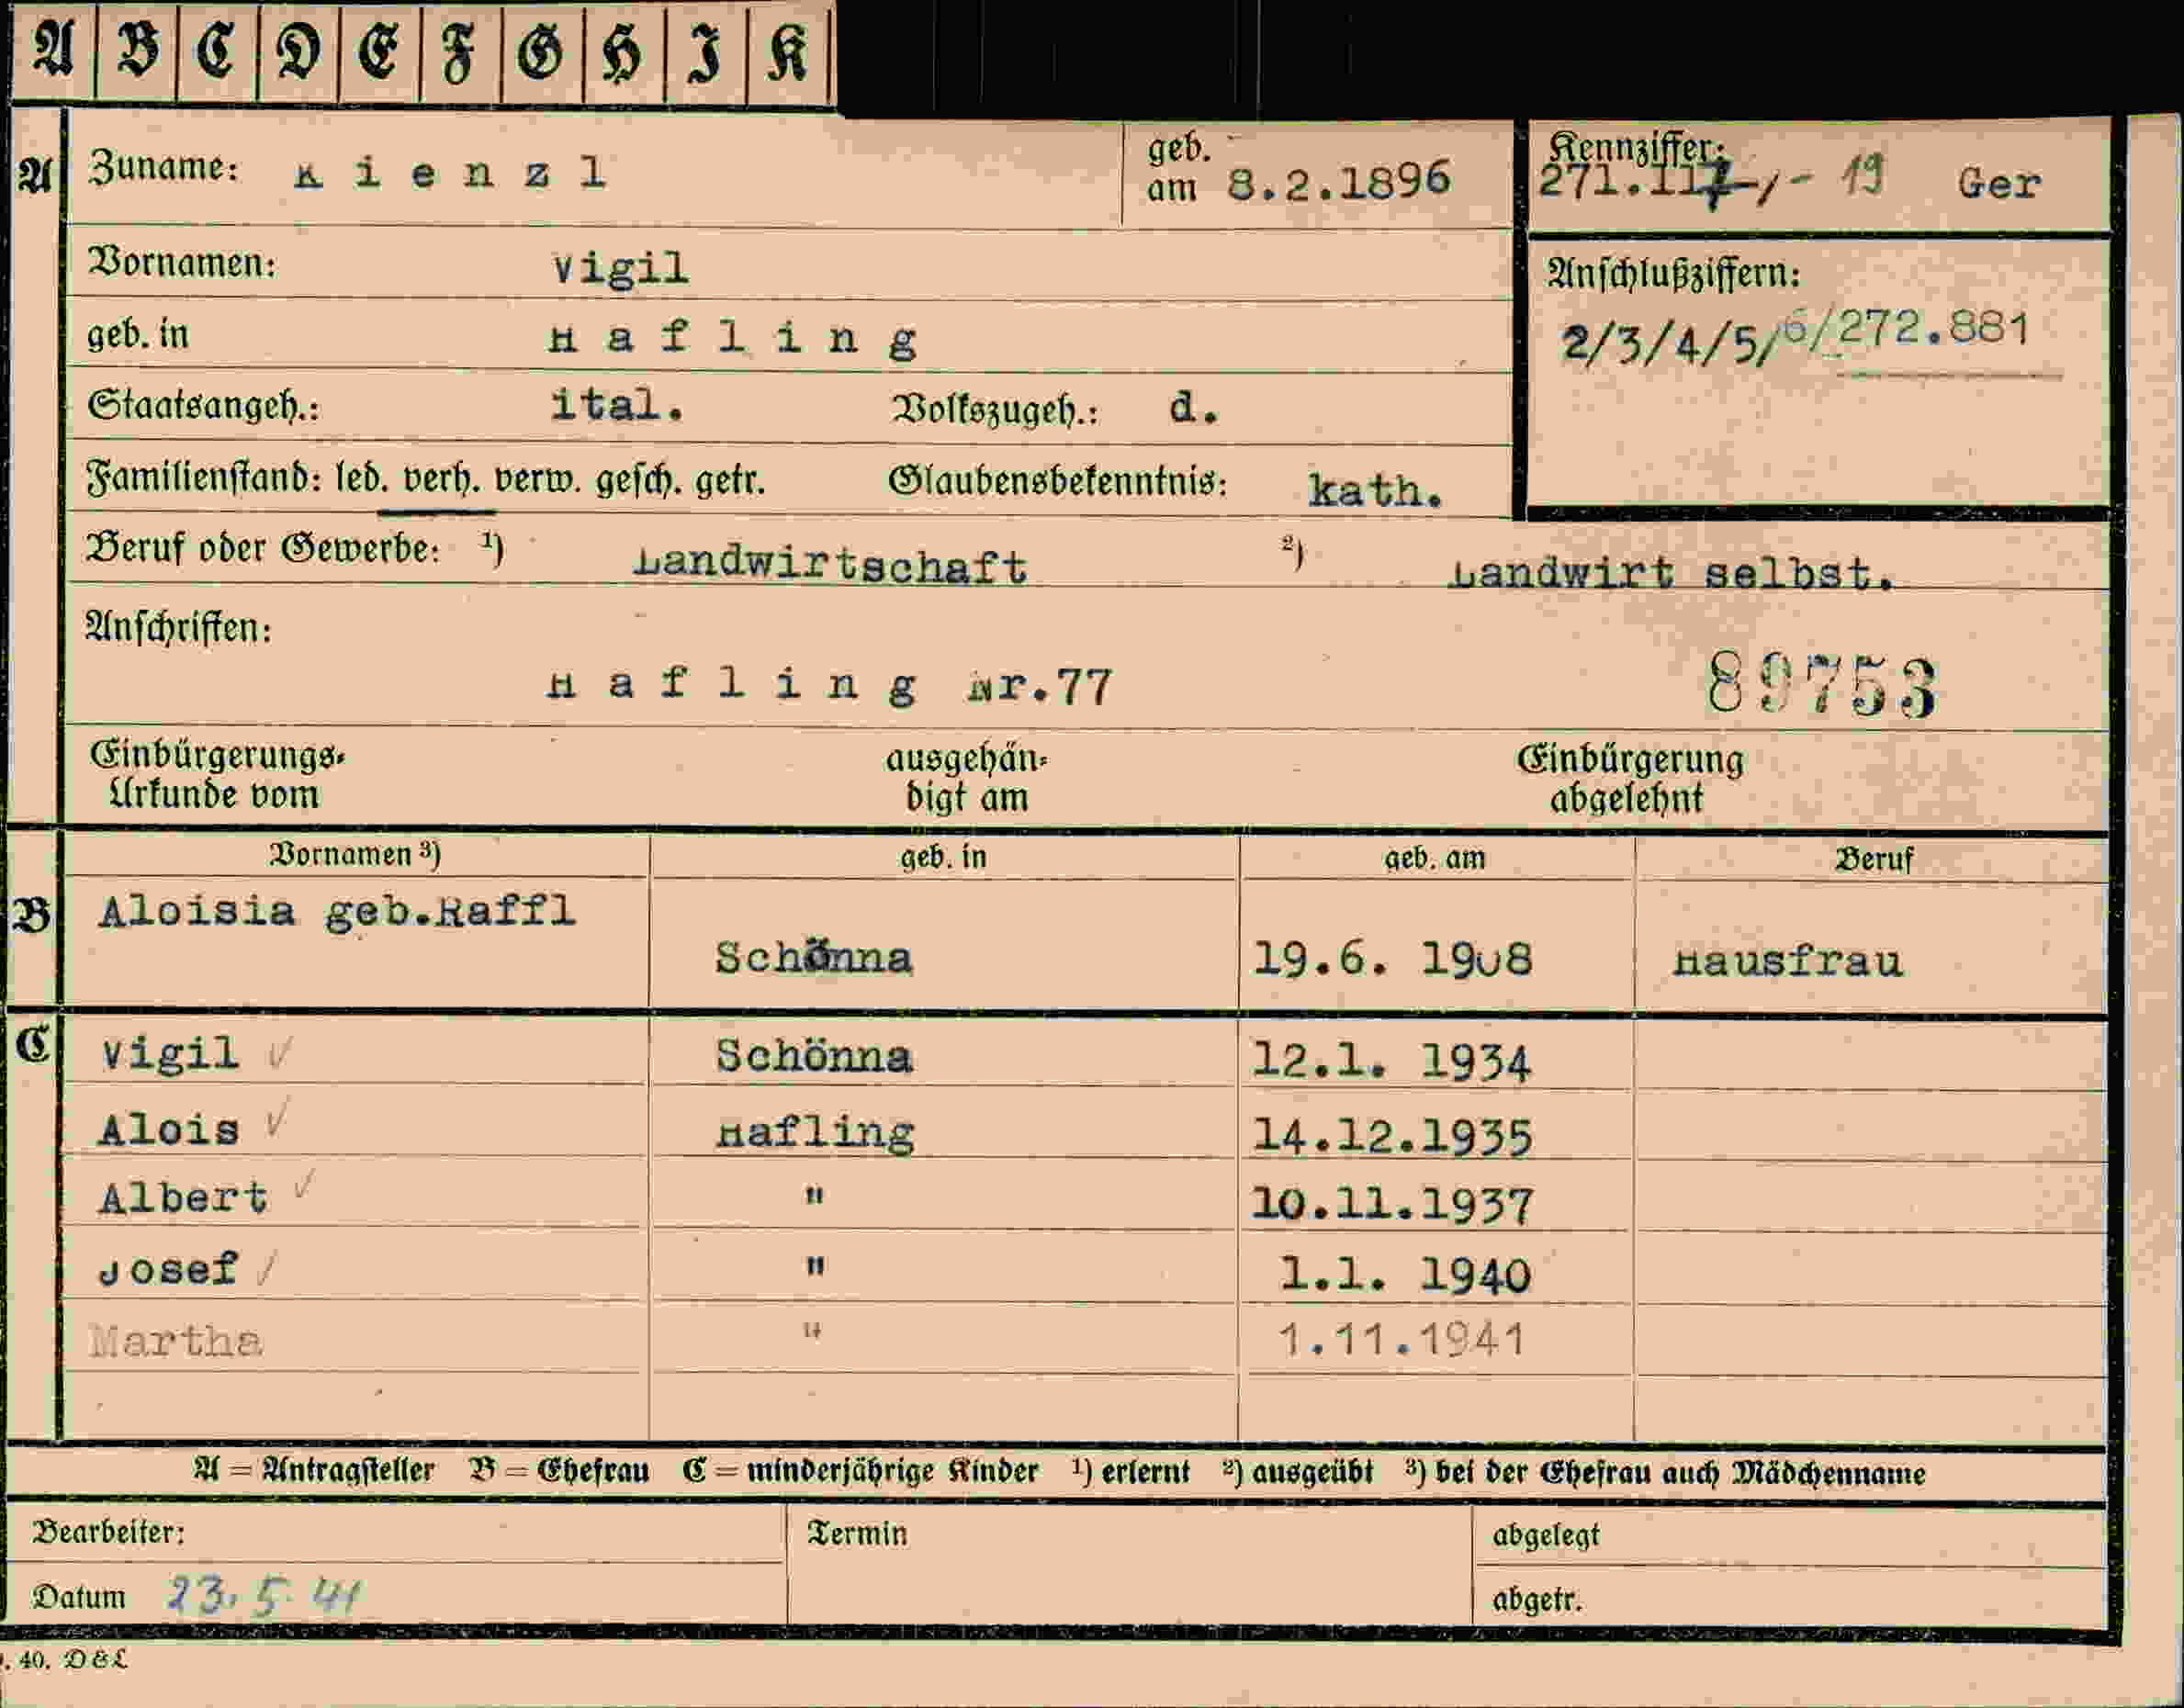 A B C D E F G H I K
A Zuname: Kienzl geb. am 8.2.1896 Kennziffer: 271.117 - 19 Ger
Vornamen: Vigil Anschlußziffern:
geb. in Hafling 2/3/4/5/6/272.881
Staatsangeh.: ital. Volkszugeh.: d.
Familienstand: led. verh. verw. gesch. getr. Glaubensbekenntnis: kath.
Beruf oder Gewerbe: ¹) Landwirtschaft ²) Landwirt selbst.
Anschriften:
Hafling Nr.77 89753
Einbürgerungs- ausgehän- Einbürgerung
Urkunde vom digt am abgelehnt
Vornamen ³) geb. in geb. am Beruf
B Aloisia geb.Raffl
Schönna 19.6. 1908 Hausfrau
C Vigil ✓ Schönna 12.1. 1934
Alois ✓ Hafling 14.12.1935
Albert ✓ " 10.11.1937
Josef ✓ " 1.1. 1940
Martha " 1.11.1941
A = Antragsteller B = Ehefrau C = minderjährige Kinder ¹) erlernt ²) ausgeübt ³) bei der Ehefrau auch Mädchenname
Bearbeiter: Termin abgelegt
Datum 23.5.41 abgetr.
. 40. D&L